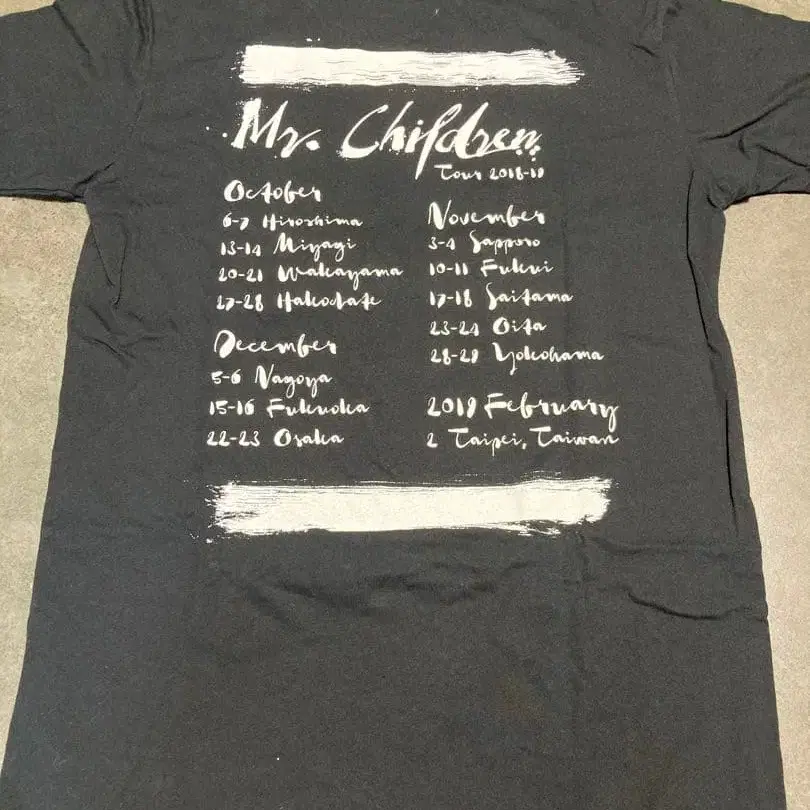 Mr. Children
Tour 2018-19
October
6-7 Hiroshima
13-14 Miyagi
20-21 Wakayama
27-28 Hakodate
November
3-4 Sapporo
10-11 Fukui
17-18 Saitama
23-24 Oita
28-29 Yokohama
December
5-6 Nagoya
15-16 Fukuoka
22-23 Osaka
2019 February
2 Taipei, Taiwan